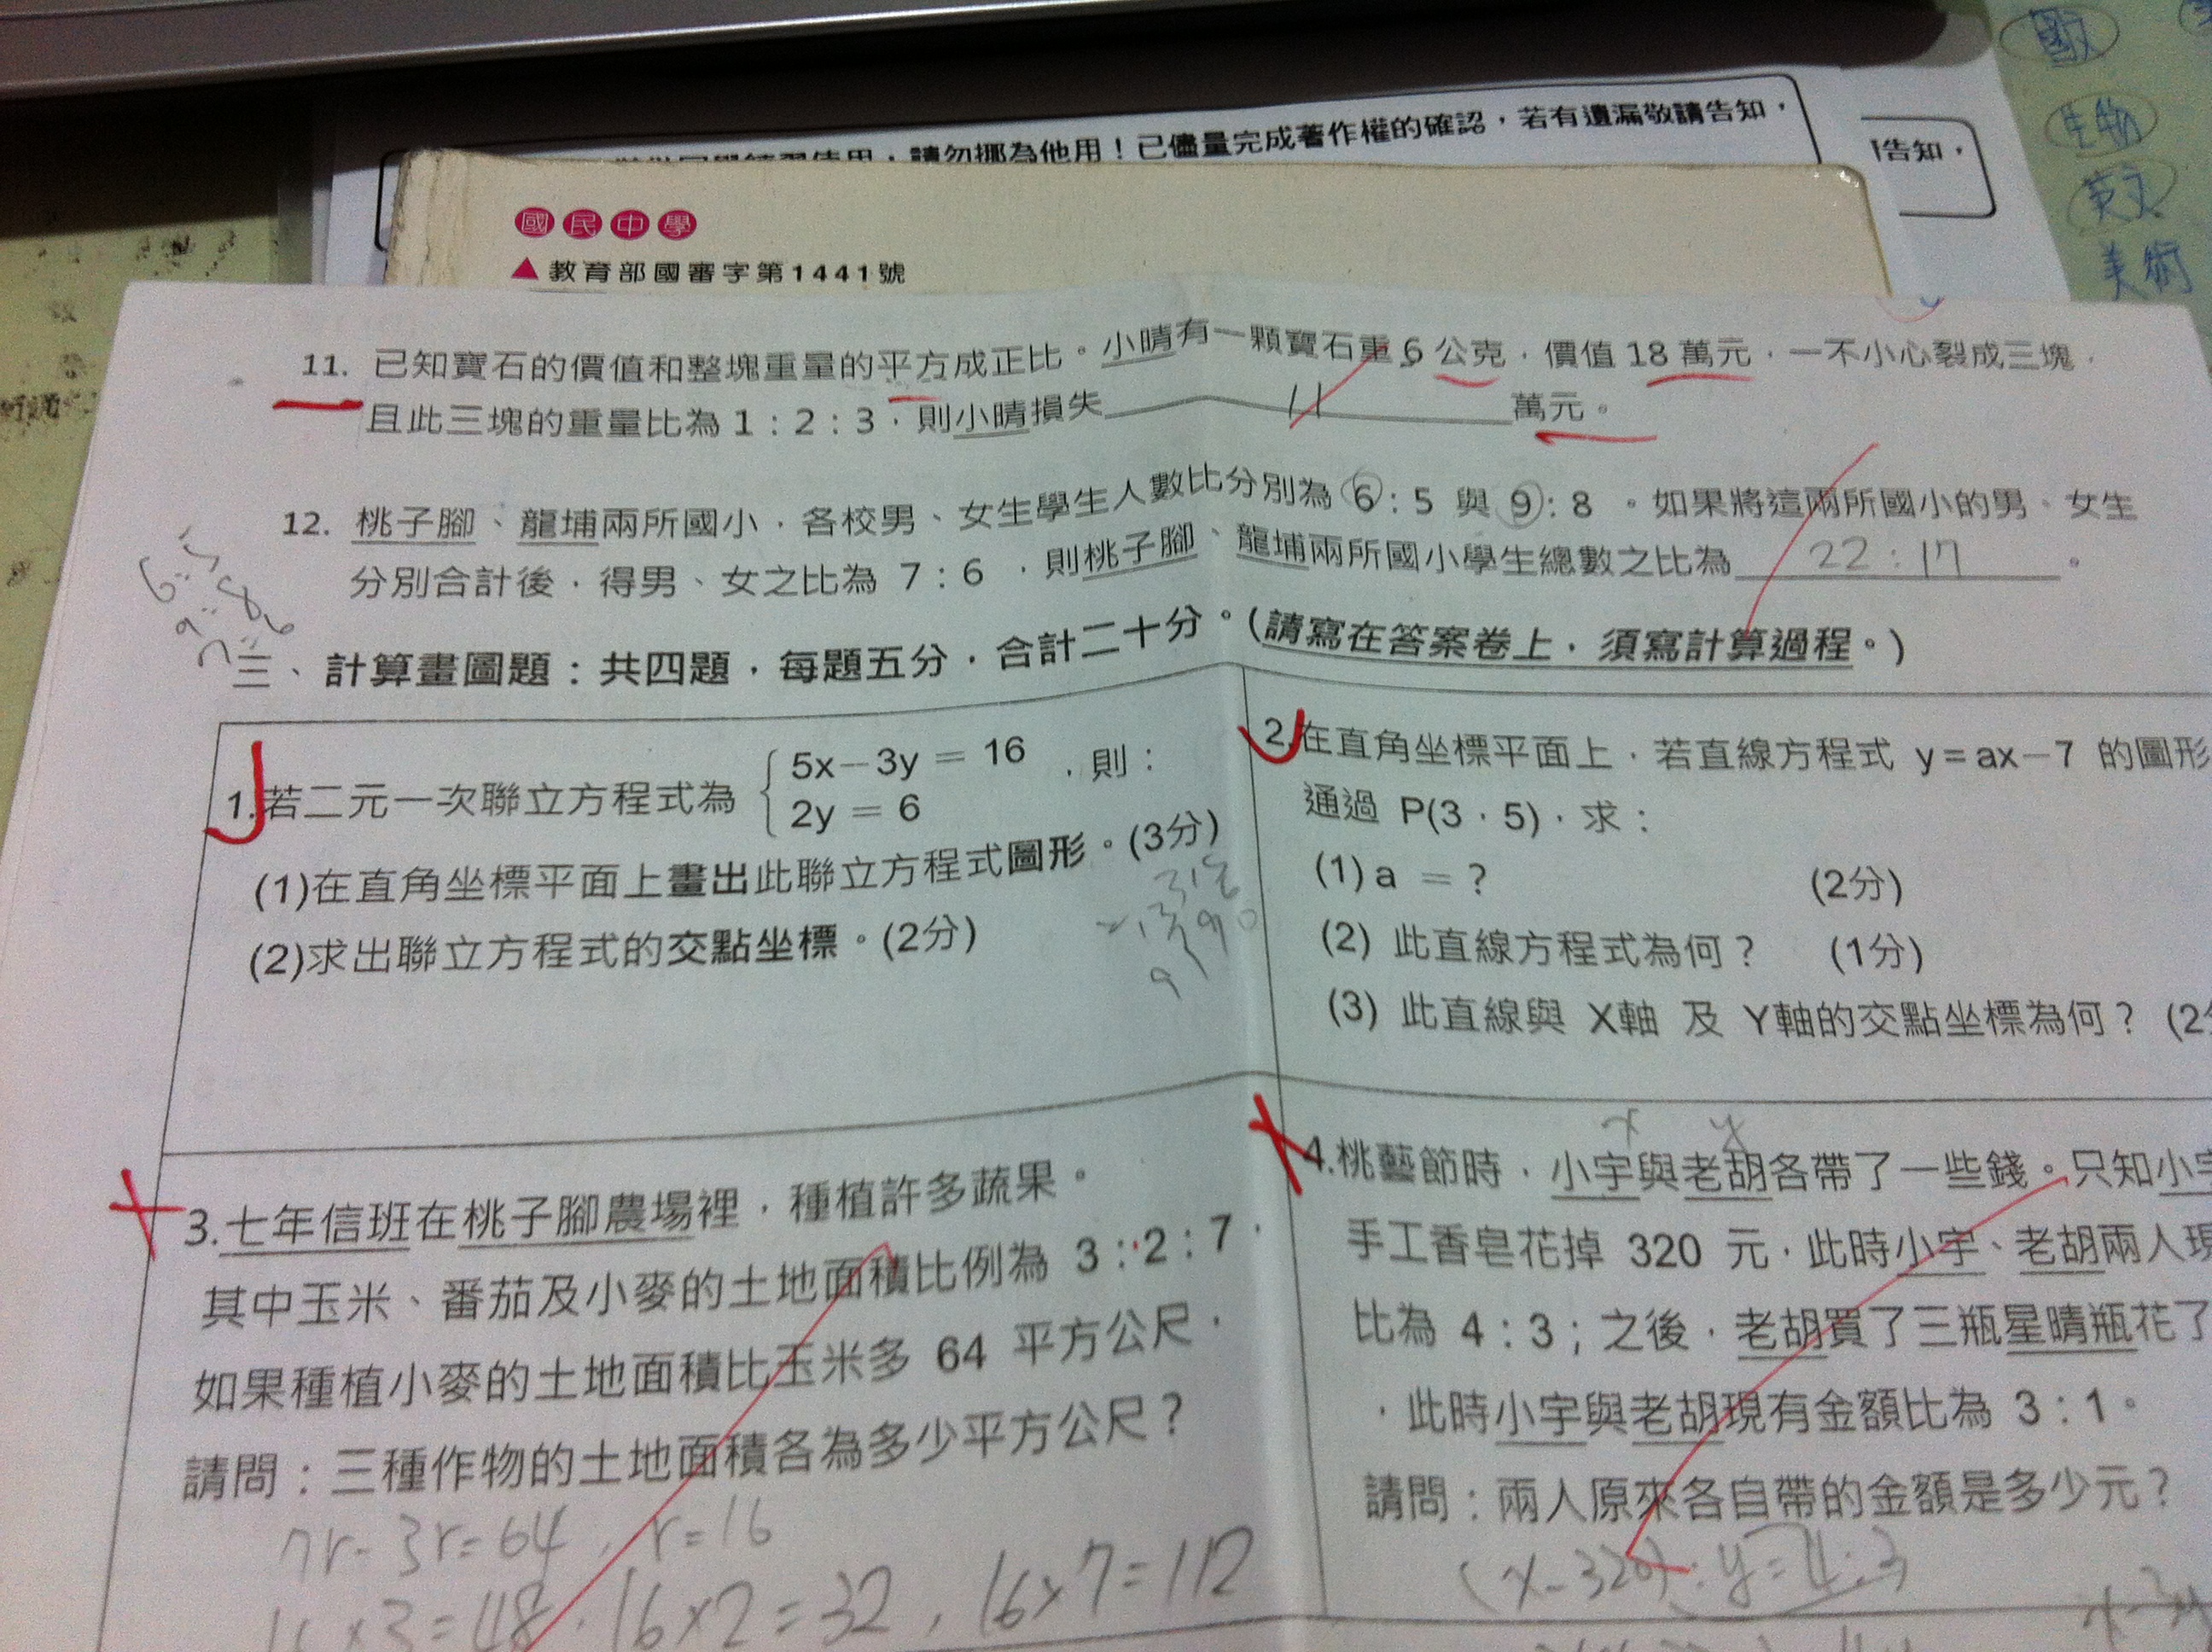 國文
生物
英文
美術
請勿挪為他用！已儘量完成著作權的確認，若有遺漏敬請告知，
告知，
國民中學
▲教育部國審字第1441號
11. 已知寶石的價值和整塊重量的平方成正比。小晴有一顆寶石重 6 公克，價值 18 萬元，一不小心裂成三塊，
且此三塊的重量比為 1：2：3，則小晴損失 11 萬元。
12. 桃子腳、龍埔兩所國小，各校男、女生學生人數比分別為 6：5 與 9：8 。如果將這兩所國小的男、女生
分別合計後，得男、女之比為 7：6 ，則桃子腳、龍埔兩所國小學生總數之比為 22：17 。
6:5
9:8
7:6
三、計算畫圖題：共四題，每題五分，合計二十分。(請寫在答案卷上，須寫計算過程。)
1.若二元一次聯立方程式為 5x－3y = 16 ，則：
2y = 6
(1)在直角坐標平面上畫出此聯立方程式圖形。(3分)
(2)求出聯立方程式的交點坐標。(2分)
2.在直角坐標平面上，若直線方程式 y=ax－7 的圖形
通過 P(3，5)，求：
(1) a = ? (2分)
(2) 此直線方程式為何？ (1分)
(3) 此直線與 X軸 及 Y軸的交點坐標為何？ (2
3.七年信班在桃子腳農場裡，種植許多蔬果。
其中玉米、番茄及小麥的土地面積比例為 3：2：7，
如果種植小麥的土地面積比玉米多 64 平方公尺，
請問：三種作物的土地面積各為多少平方公尺？
7r-3r=64，r=16
16×3=48，16×2=32，16×7=112
x y
4.桃藝節時，小宇與老胡各帶了一些錢。只知小宇
手工香皂花掉 320 元，此時小宇、老胡兩人現
比為 4：3；之後，老胡買了三瓶星晴瓶花了
，此時小宇與老胡現有金額比為 3：1。
請問：兩人原來各自帶的金額是多少元？
(x-320):y=4:3